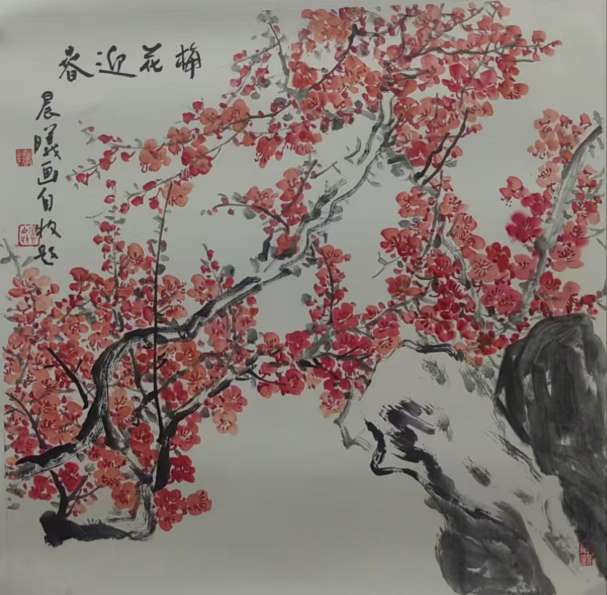 梅花迎春
晨曦画自牧题